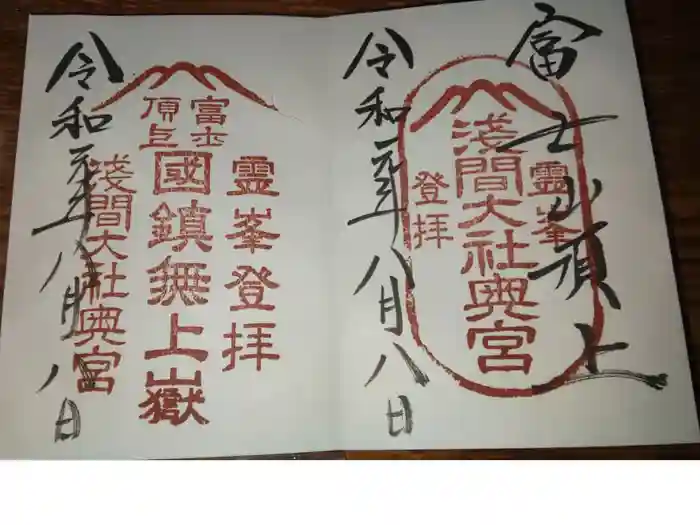 富士山頂上
霊峯
浅間大社奥宮
登拝
令和元年八月八日
霊峯登拝
富士
頂上
國鎮無上嶽
浅間大社奥宮
令和元年八月八日